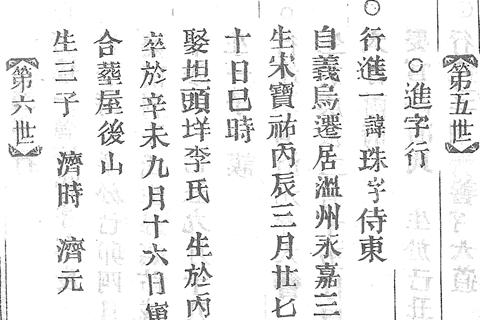 【第五世】
○進字行
○行進一諱珠字侍東
自義烏遷居溫州永嘉三
生宋寶祐丙辰三月廿七
十日巳時
娶坦頭垟李氏 生於丙
卒於辛未九月十六日寅
合葬屋後山
生三子 濟時 濟元
【第六世】